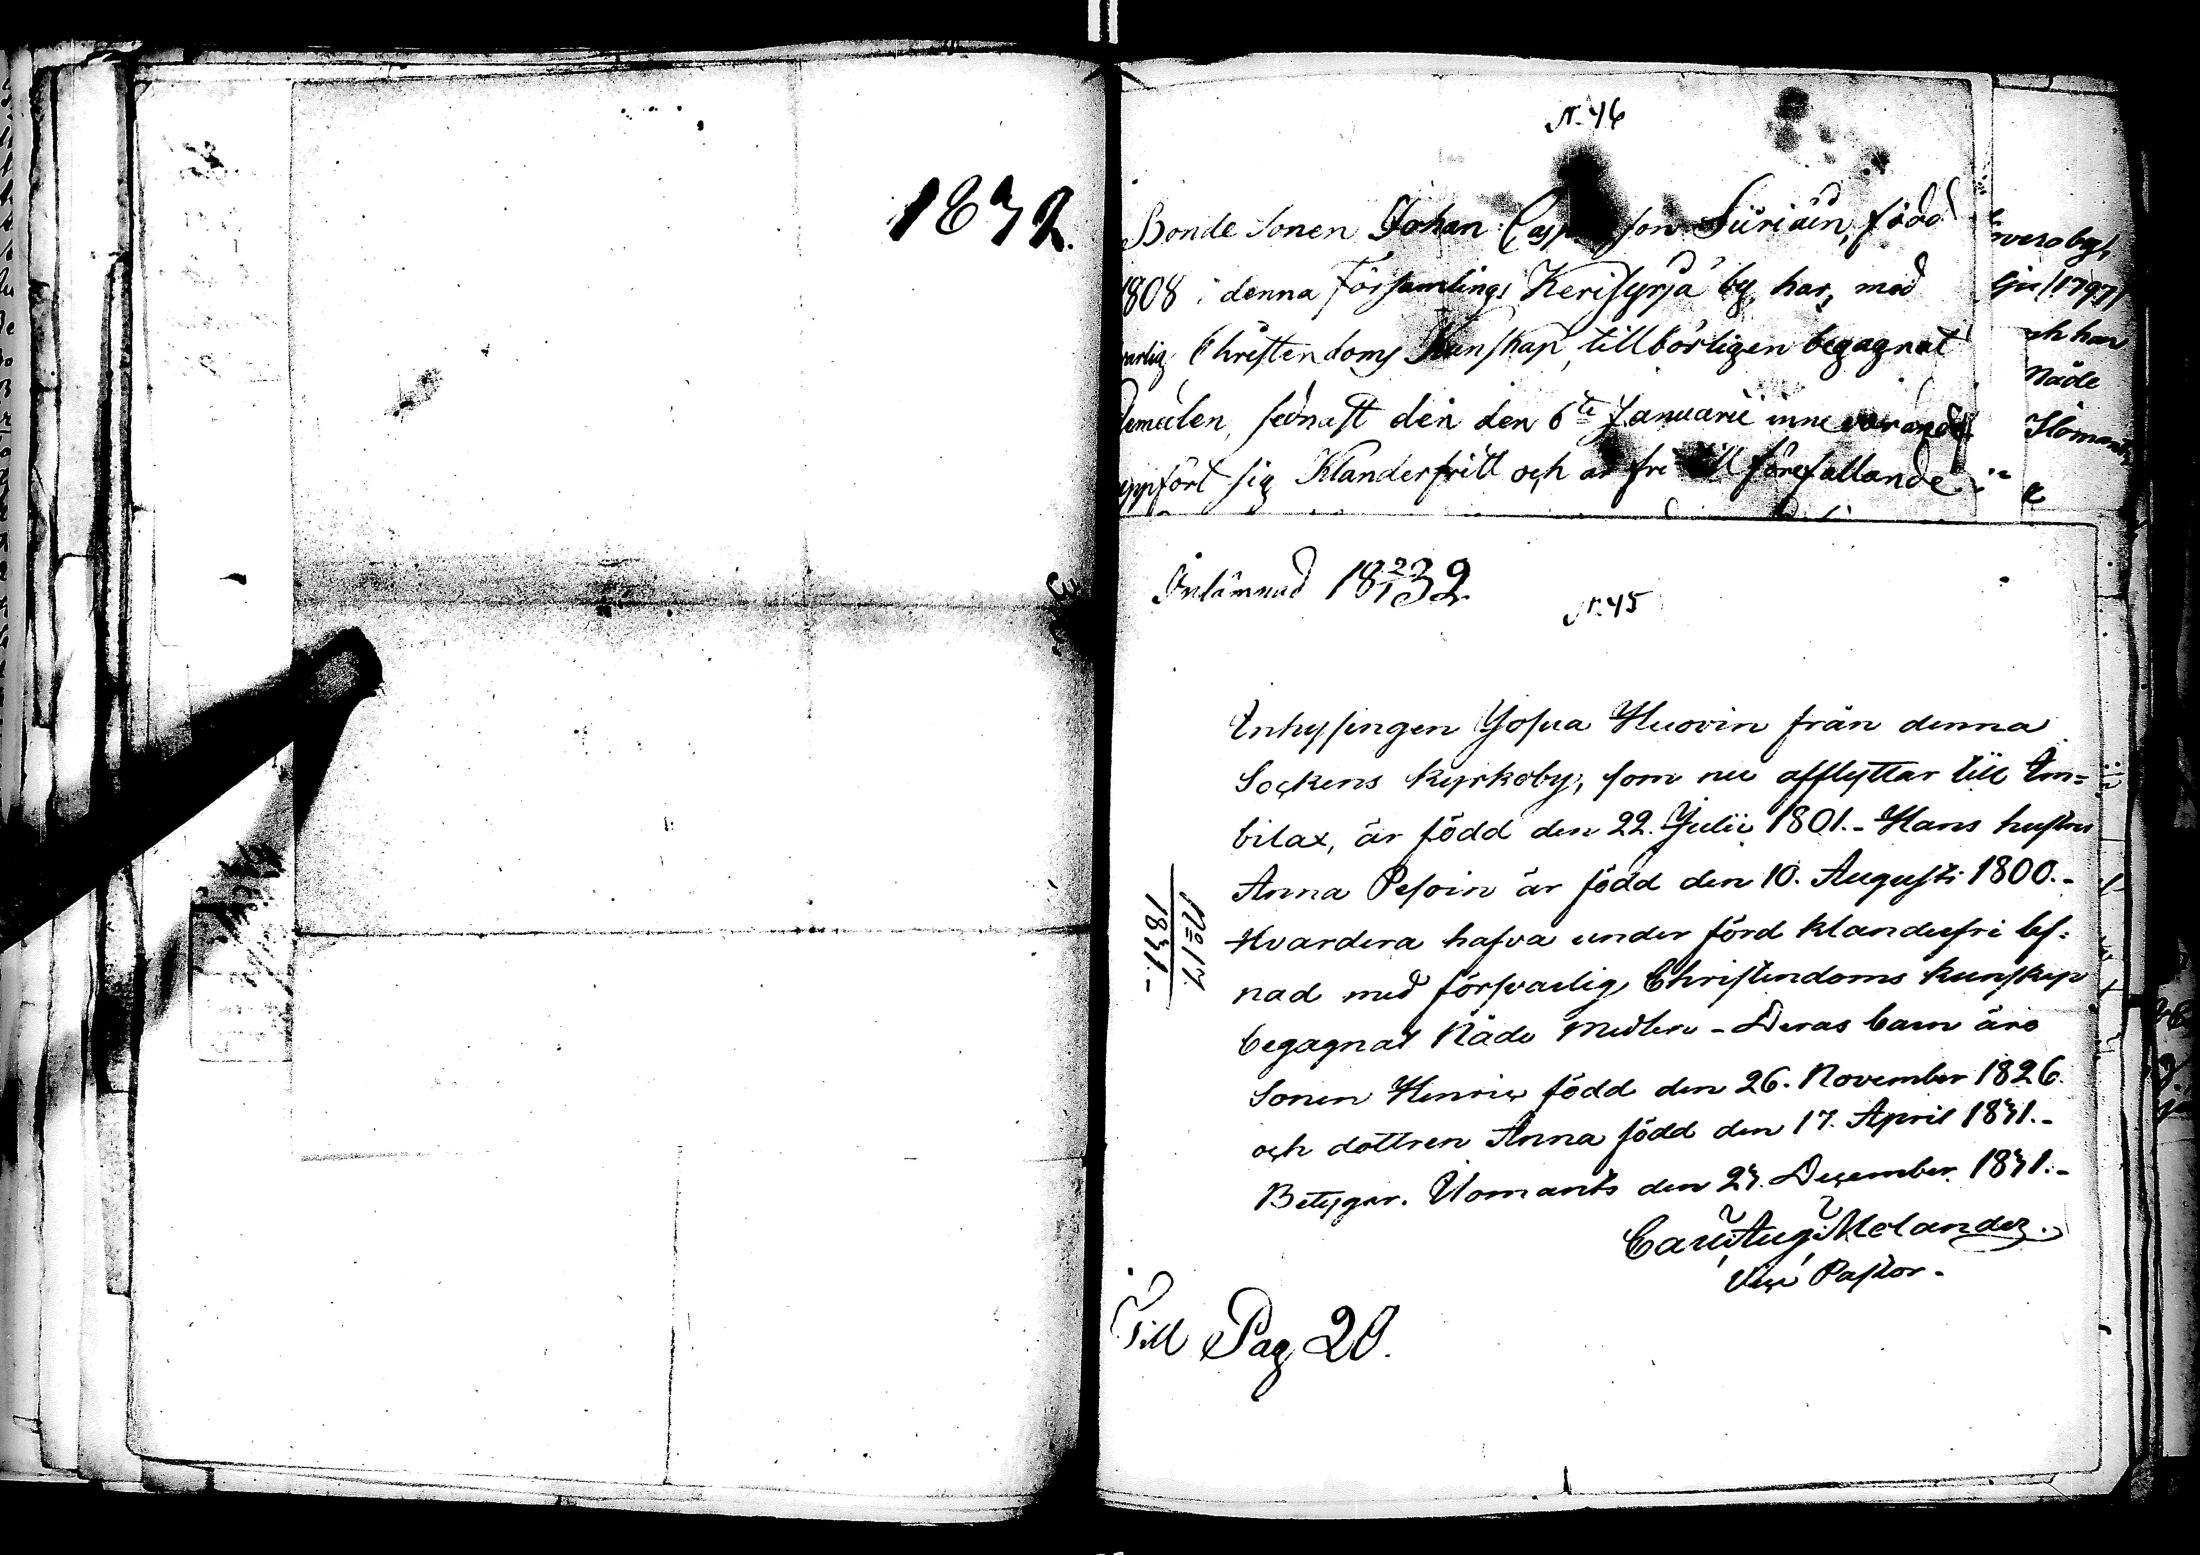 1832.
N. 46
Bonde Sonen Johan son Siiriäin, född
1808 i denna Församlings Kerisyrjä by, har, med
varlig Christendoms Kunskap, tillbörligen begagnat
demedlen, sednast den den 6te Januarii innevarande
uppfört sig Klanderfritt och är fri till förefallande
Inlämnad 18 2/1 32
N. 45
Inhysingen Josua Huovin från denna
Sockens kyrkoby, som nu afflyttar till Im=
bilax, är född den 22. Julii 1801. - Hans hustru
Anna Pesoin är född den 10. Augusti 1800. -
Hvardera hafva under förd klanderfri lef=
nad med försvarlig Christendoms kunskap
begagnat Nåde Medlen - Deras barn äro
Sonen Henric född den 26. November 1826.
och dottren Anna född den 17. April 1831. -
Betygar. Ilomants den 23. December 1831. -
Carl Aug. Molander.
Vice Pastor -
No 17.
1831. -
Till Pag 20.
1797
och har
Nåde
Ilomants